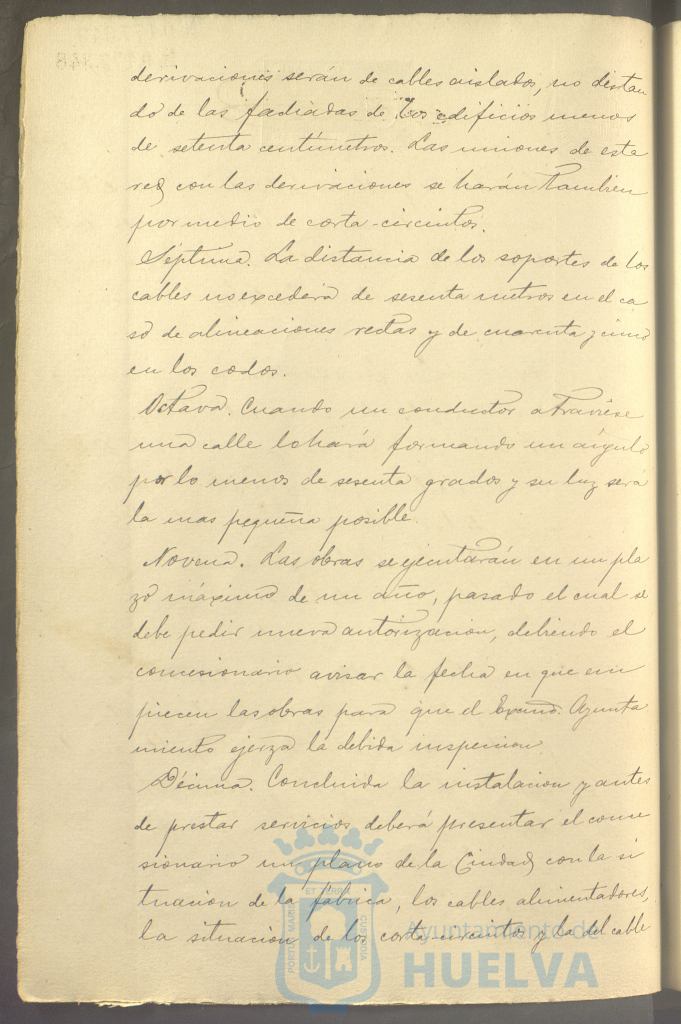 derivaciones serán de cables aislados, no distan
do de las fachadas de los edificios menos
de setenta centímetros. Las uniones de esta
red con las derivaciones se harán tambien
por medio de corta-circuitos.
Séptima. La distancia de los soportes de los
cables no excederá de sesenta metros en el ca
so de alineaciones rectas y de cuarenta y cinco
en los codos.
Octava. Cuando un conductor atraviese
una calle lo hará formando un ángulo
por lo menos de sesenta grados y su luz será
la mas pequeña posible.
Novena. Las obras se ejecutarán en un pla
zo máximo de un año, pasado el cual se
debe pedir nueva autorizacion, debiendo el
concesionario avisar la fecha en que em
piecen las obras para que el Excmo. Ayunta
miento ejerza la debida inspeccion.
Décima. Concluida la instalacion y antes
de prestar servicios deberá presentar el conce
sionario un plano de la Ciudad con la si
tuacion de la fábrica, los cables alimentadores,
la situacion de los corta-circuitos y la del cable
PORTUS MARIS ET TERRÆ CUSTODIA
Ayuntamiento de
HUELVA